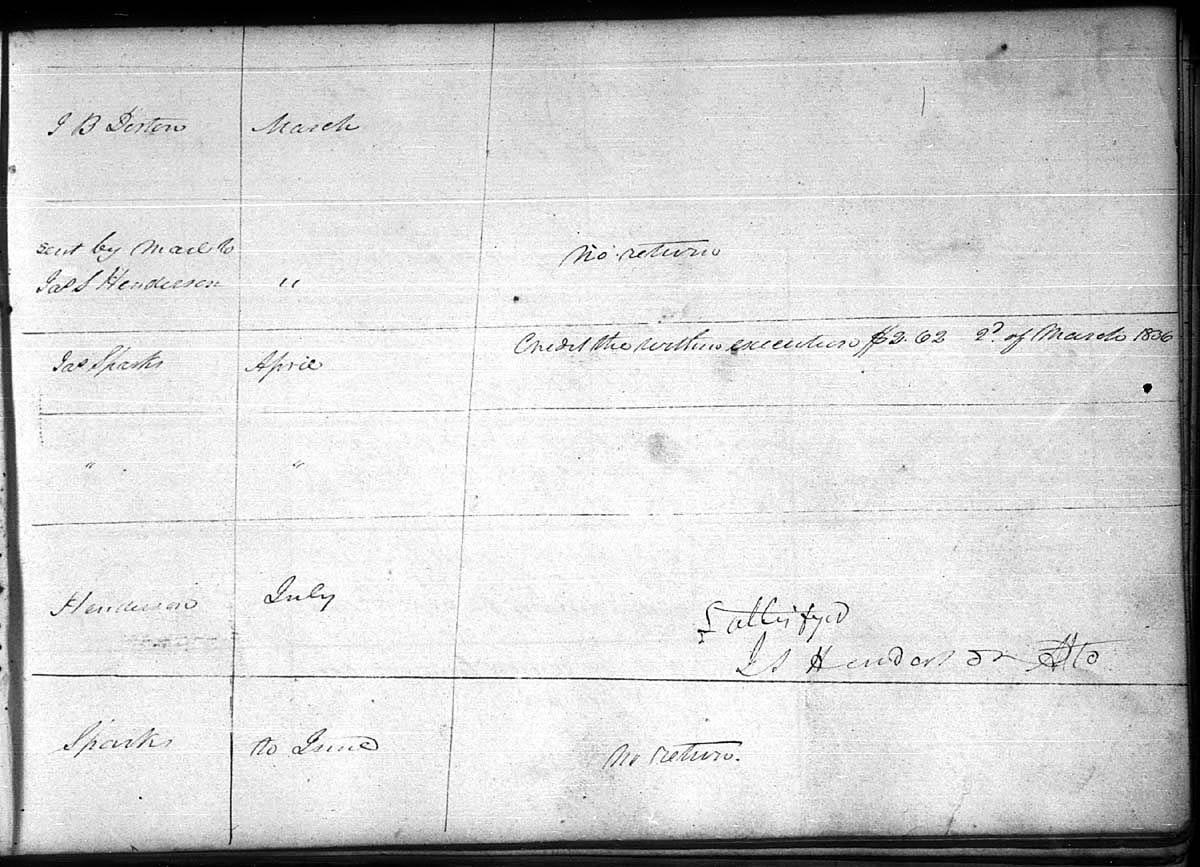 J B March
sent by mail to
no return
Jas S Henderson "
Credit the within execution $2.62 2d of March 1836
Jas Sparks April
" "
Henderson July
Sattisfyd
J S Henderson Atto
Sparks to June no return.